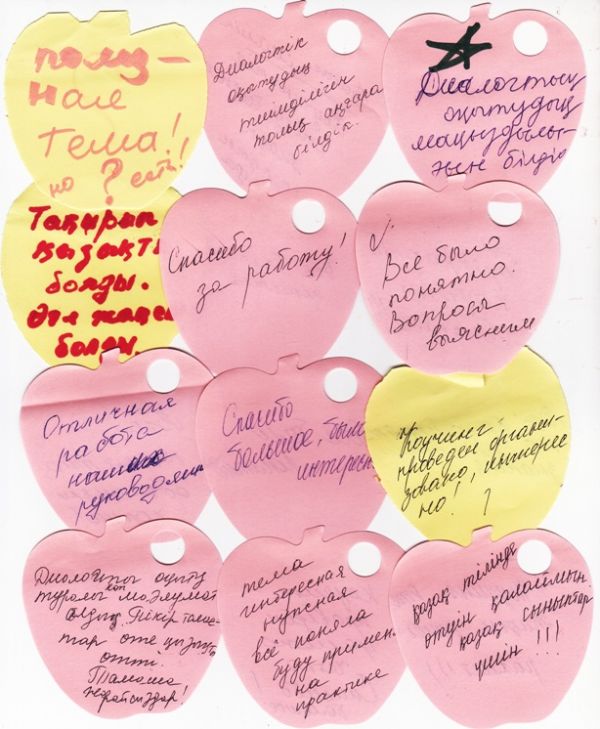 полез-
ная
тема!
но ? есть!
Диалогтік
оқытудың
тиімділігін
толық аңғара
білдік.
Диалогтың
оқытудың
маңыздылы-
ғын білдік
Тақырып
қызықты
болды.
Өте жақсы
болды.
Спасибо
за работу!
Всё было
понятно.
Вопросы
выясним
Отличная
работа
наших
руководящих
Спасибо
большое, было
интересно
Коучинг
проведен органи-
зовано, интерес
но!
Диологты оқыту
туралы көп мағлұмат
алдық. Пікір талас-
тар өте қызықты
өтті.
Тамаша
жарайсыздар!
тема
интересная
нужная
всё поняла
буду примен.
на
практике
қазақ тілінде
өтуін қалаймын.
қазақ сыныптар
үшін !!!